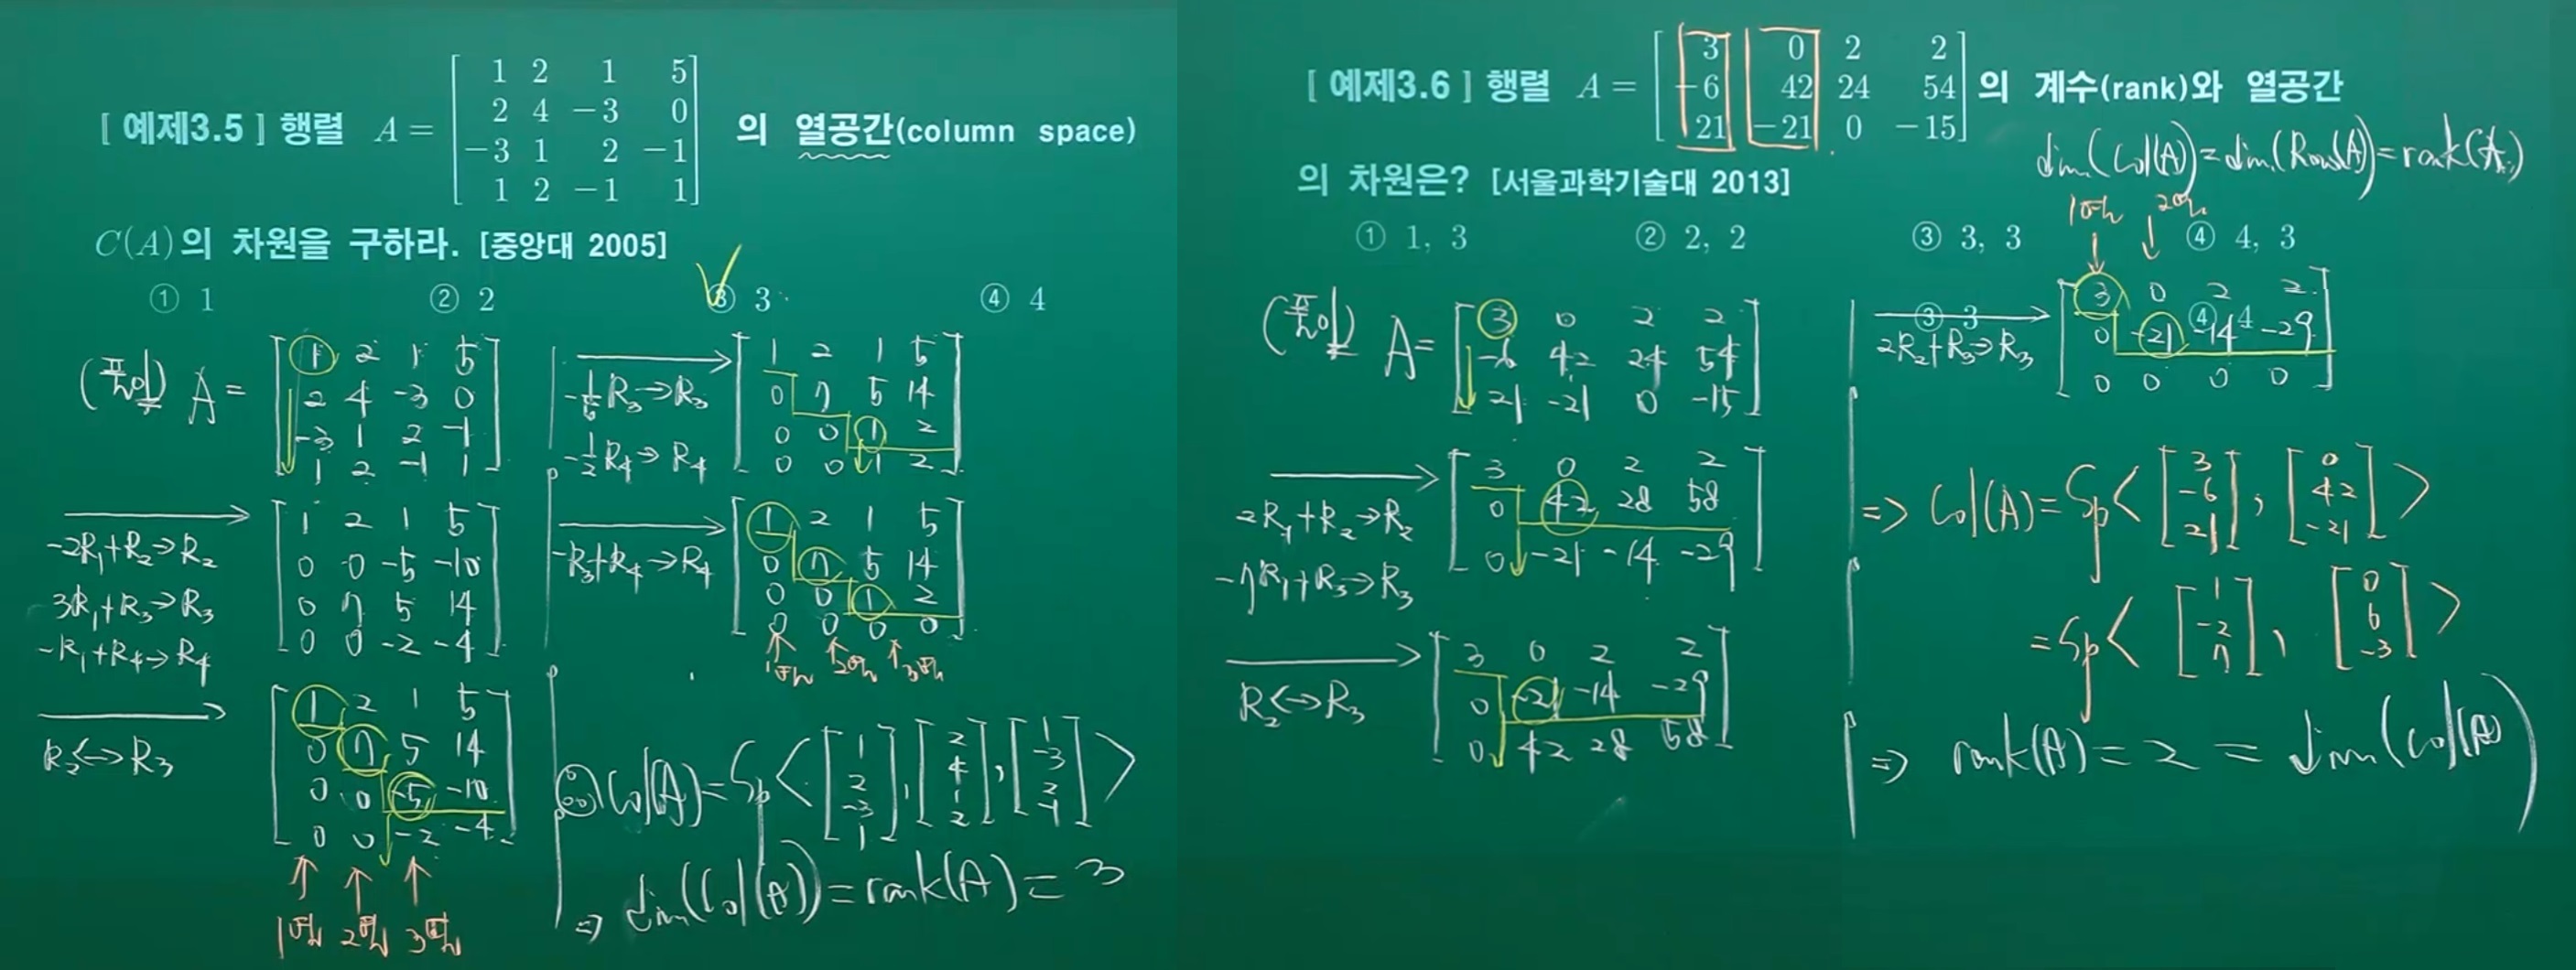 [ 예제3.5 ] 행렬 A = [1 2 1 5; 2 4 -3 0; -3 1 2 -1; 1 2 -1 1] 의 열공간(column space)
C(A)의 차원을 구하라. [중앙대 2005]
① 1 ② 2 ③ 3 ④ 4
(풀이) A = [1 2 1 5; 2 4 -3 0; -3 1 2 -1; 1 2 -1 1]
-2R₁+R₂→R₂
3R₁+R₃→R₃
-R₁+R₄→R₄
[1 2 1 5; 0 0 -5 -10; 0 7 5 14; 0 0 -2 -4]
R₂↔R₃
[1 2 1 5; 0 7 5 14; 0 0 -5 -10; 0 0 -2 -4]
↑ ↑ ↑
1열 2열 3열
-1/5 R₃→R₃
-1/2 R₄→R₄
[1 2 1 5; 0 7 5 14; 0 0 1 2; 0 0 1 2]
-R₃+R₄→R₄
[1 2 1 5; 0 7 5 14; 0 0 1 2; 0 0 0 0]
↑ ↑ ↑
1열 2열 3열
Col(A) = Sp< [1; 2; -3; 1], [2; 4; 1; 2], [1; -3; 2; -1] >
⇒ dim(Col(A)) = rank(A) = 3
[ 예제3.6 ] 행렬 A = [3 0 2 2; -6 42 24 54; 21 -21 0 -15] 의 계수(rank)와 열공간
의 차원은? [서울과학기술대 2013]
dim(Col(A)) = dim(Row(A)) = rank(A)
① 1, 3 ② 2, 2 ③ 3, 3 ④ 4, 3
(풀이) A = [3 0 2 2; -6 42 24 54; 21 -21 0 -15]
2R₁+R₂→R₂
-7R₁+R₃→R₃
[3 0 2 2; 0 42 28 58; 0 -21 -14 -29]
R₂↔R₃
[3 0 2 2; 0 -21 -14 -29; 0 42 28 58]
③ 3 ④ 4
2R₂+R₃→R₃
1열 2열
↓ ↓
[3 0 2 2; 0 -21 -14 -29; 0 0 0 0]
⇒ Col(A) = Sp< [3; -6; 21], [0; 42; -21] >
= Sp< [1; -2; 7], [0; 6; -3] >
⇒ rank(A) = 2 = dim(Col(A))